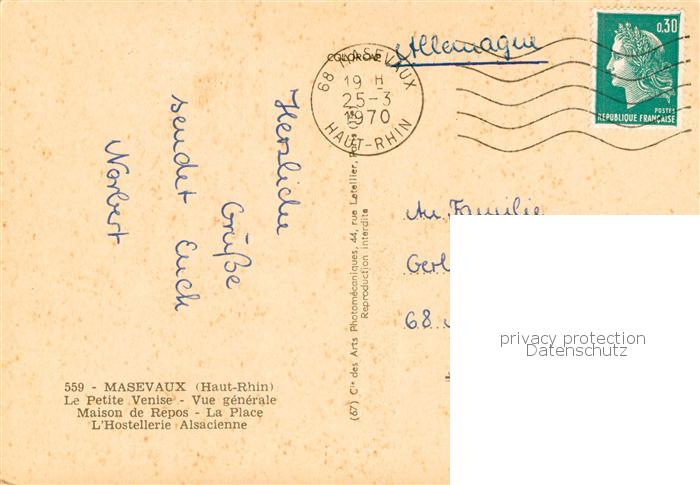 Allemagne
0,30
POSTES
REPUBLIQUE FRANÇAISE
68 MASEVAUX
19 H
25-3
1970
HAUT-RHIN
Herzliche
Grüße
sendet Euch
Norbert
An Familie
Gerl
68
(67) Cie des Arts Photomécaniques, 44, rue Letellier, Paris
Reproduction interdite
559 - MASEVAUX (Haut-Rhin)
Le Petite Venise - Vue générale
Maison de Repos - La Place
L'Hostellerie Alsacienne
privacy protection
Datenschutz